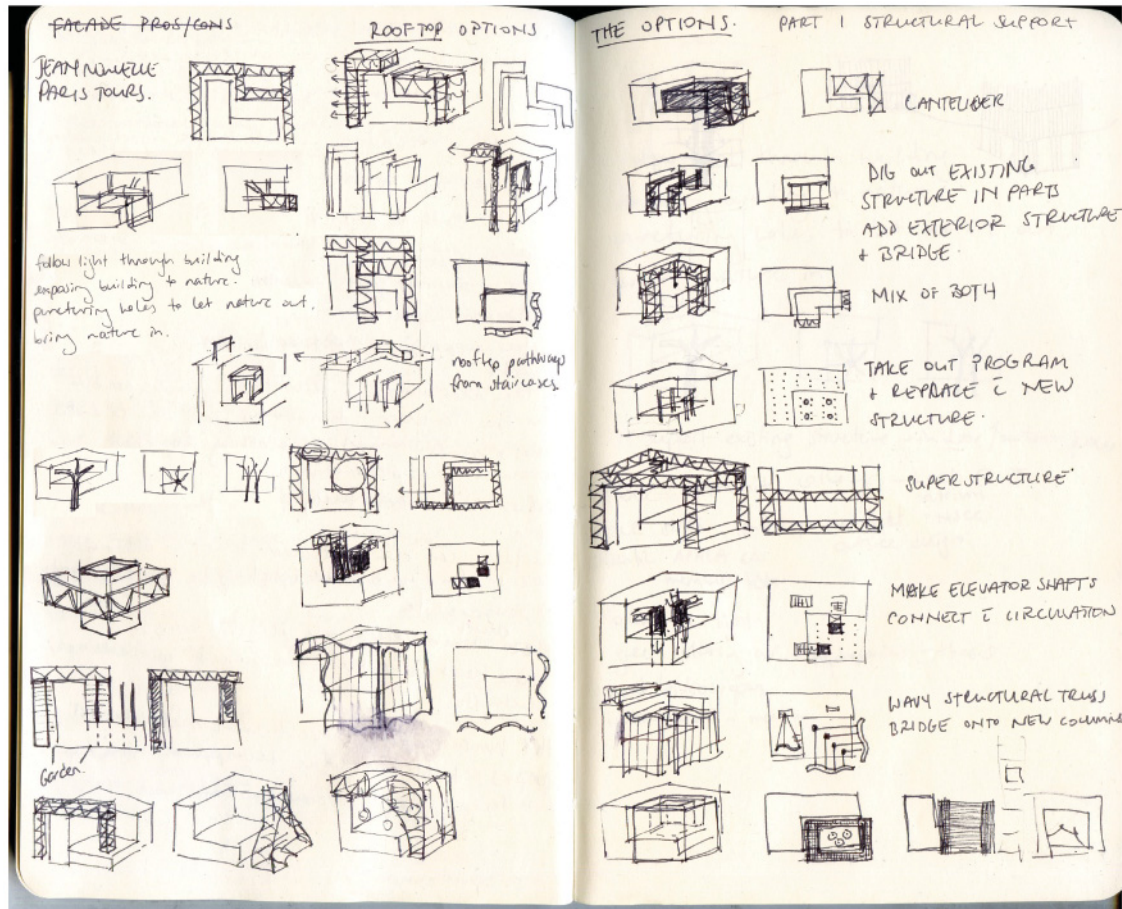 FACADE PROS/CONS
ROOFTOP OPTIONS
JEAN NOUVELLE
PARIS TOURS.
follow light through building
exposing building to nature.
puncturing holes to let nature out.
bring nature in.
rooftop pathways
from staircases
Garden.
THE OPTIONS. PART 1 STRUCTURAL SUPPORT
CANTELIBER
DIG OUT EXISTING
STRUCTURE IN PARTS
ADD EXTERIOR STRUCTURE
+ BRIDGE.
MIX OF BOTH
TAKE OUT PROGRAM
+ REPLACE c̄ NEW
STRUCTURE.
SUPERSTRUCTURE
MAKE ELEVATOR SHAFTS
CONNECT c̄ CIRCULATION
WAVY STRUCTURAL TRUSS
BRIDGE ONTO NEW COLUMNS